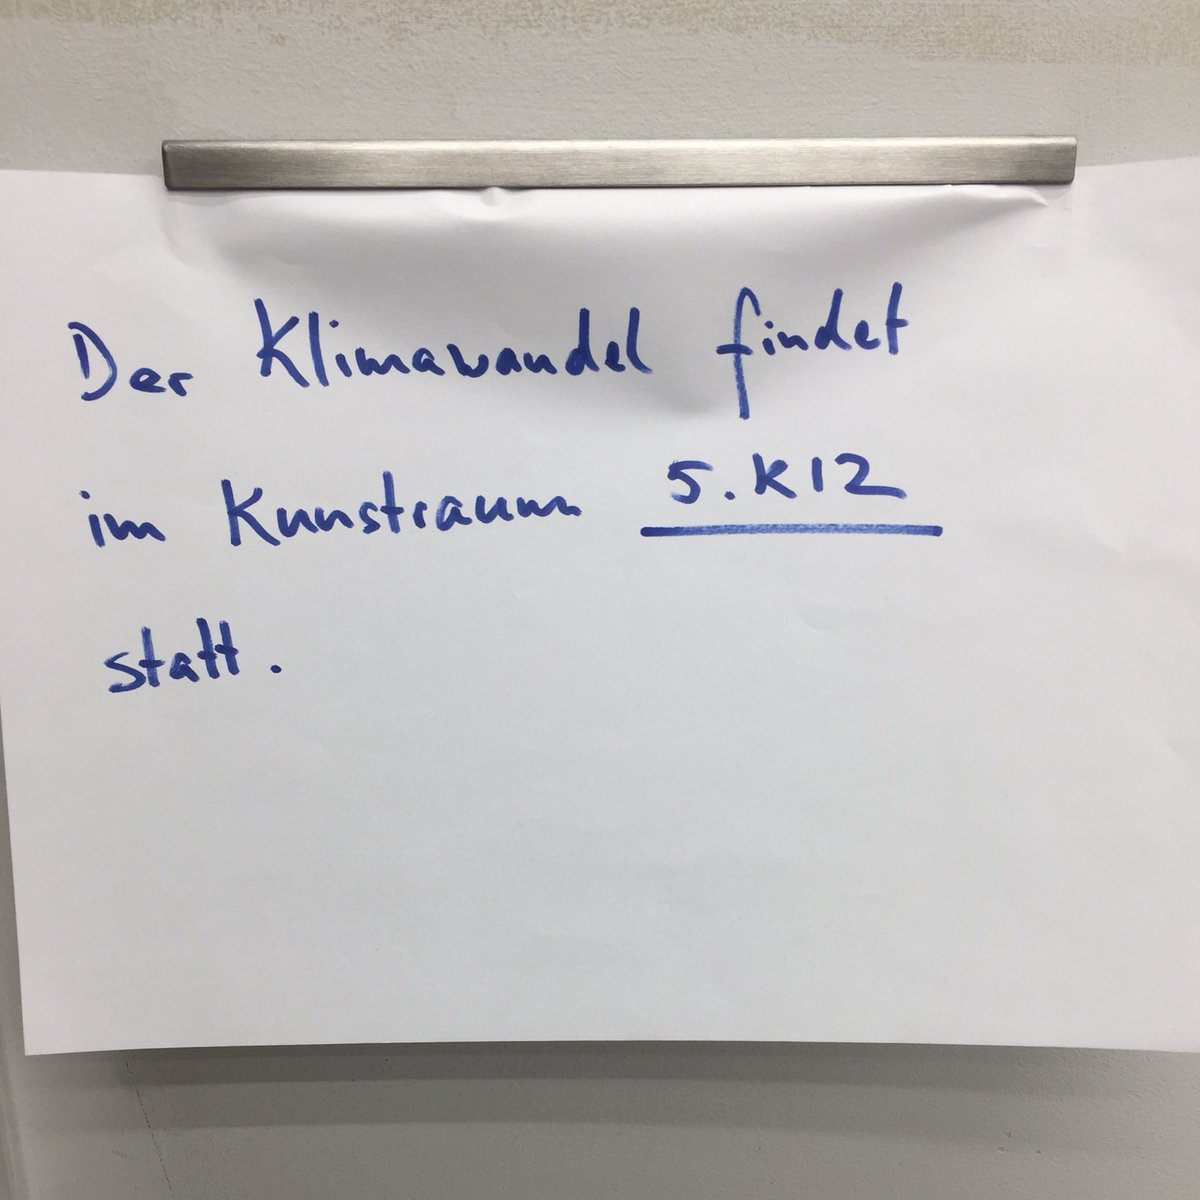 Der Klimawandel findet
im Kunstraum 5.K12
statt.